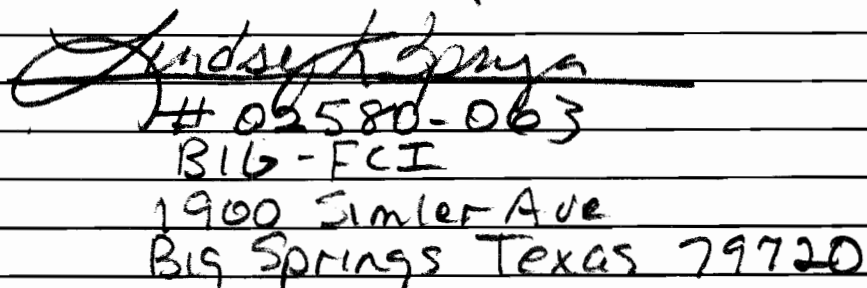 Lindsey K Springer
# 02580-063
BIG-FCI
1900 Simler Ave
Big Springs Texas 79720